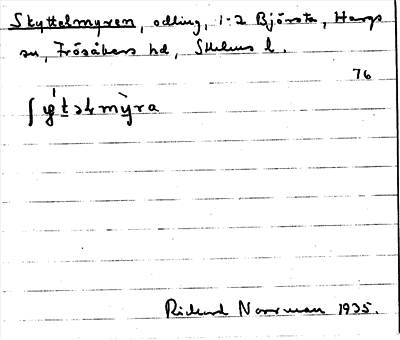 Skyttelmyren, odling, 1-2 Björsta, Harg
sn, Frösåkers hd, Sthlms l.
76
ʃyt̲əlmỳra
Richard Norrman 1935.